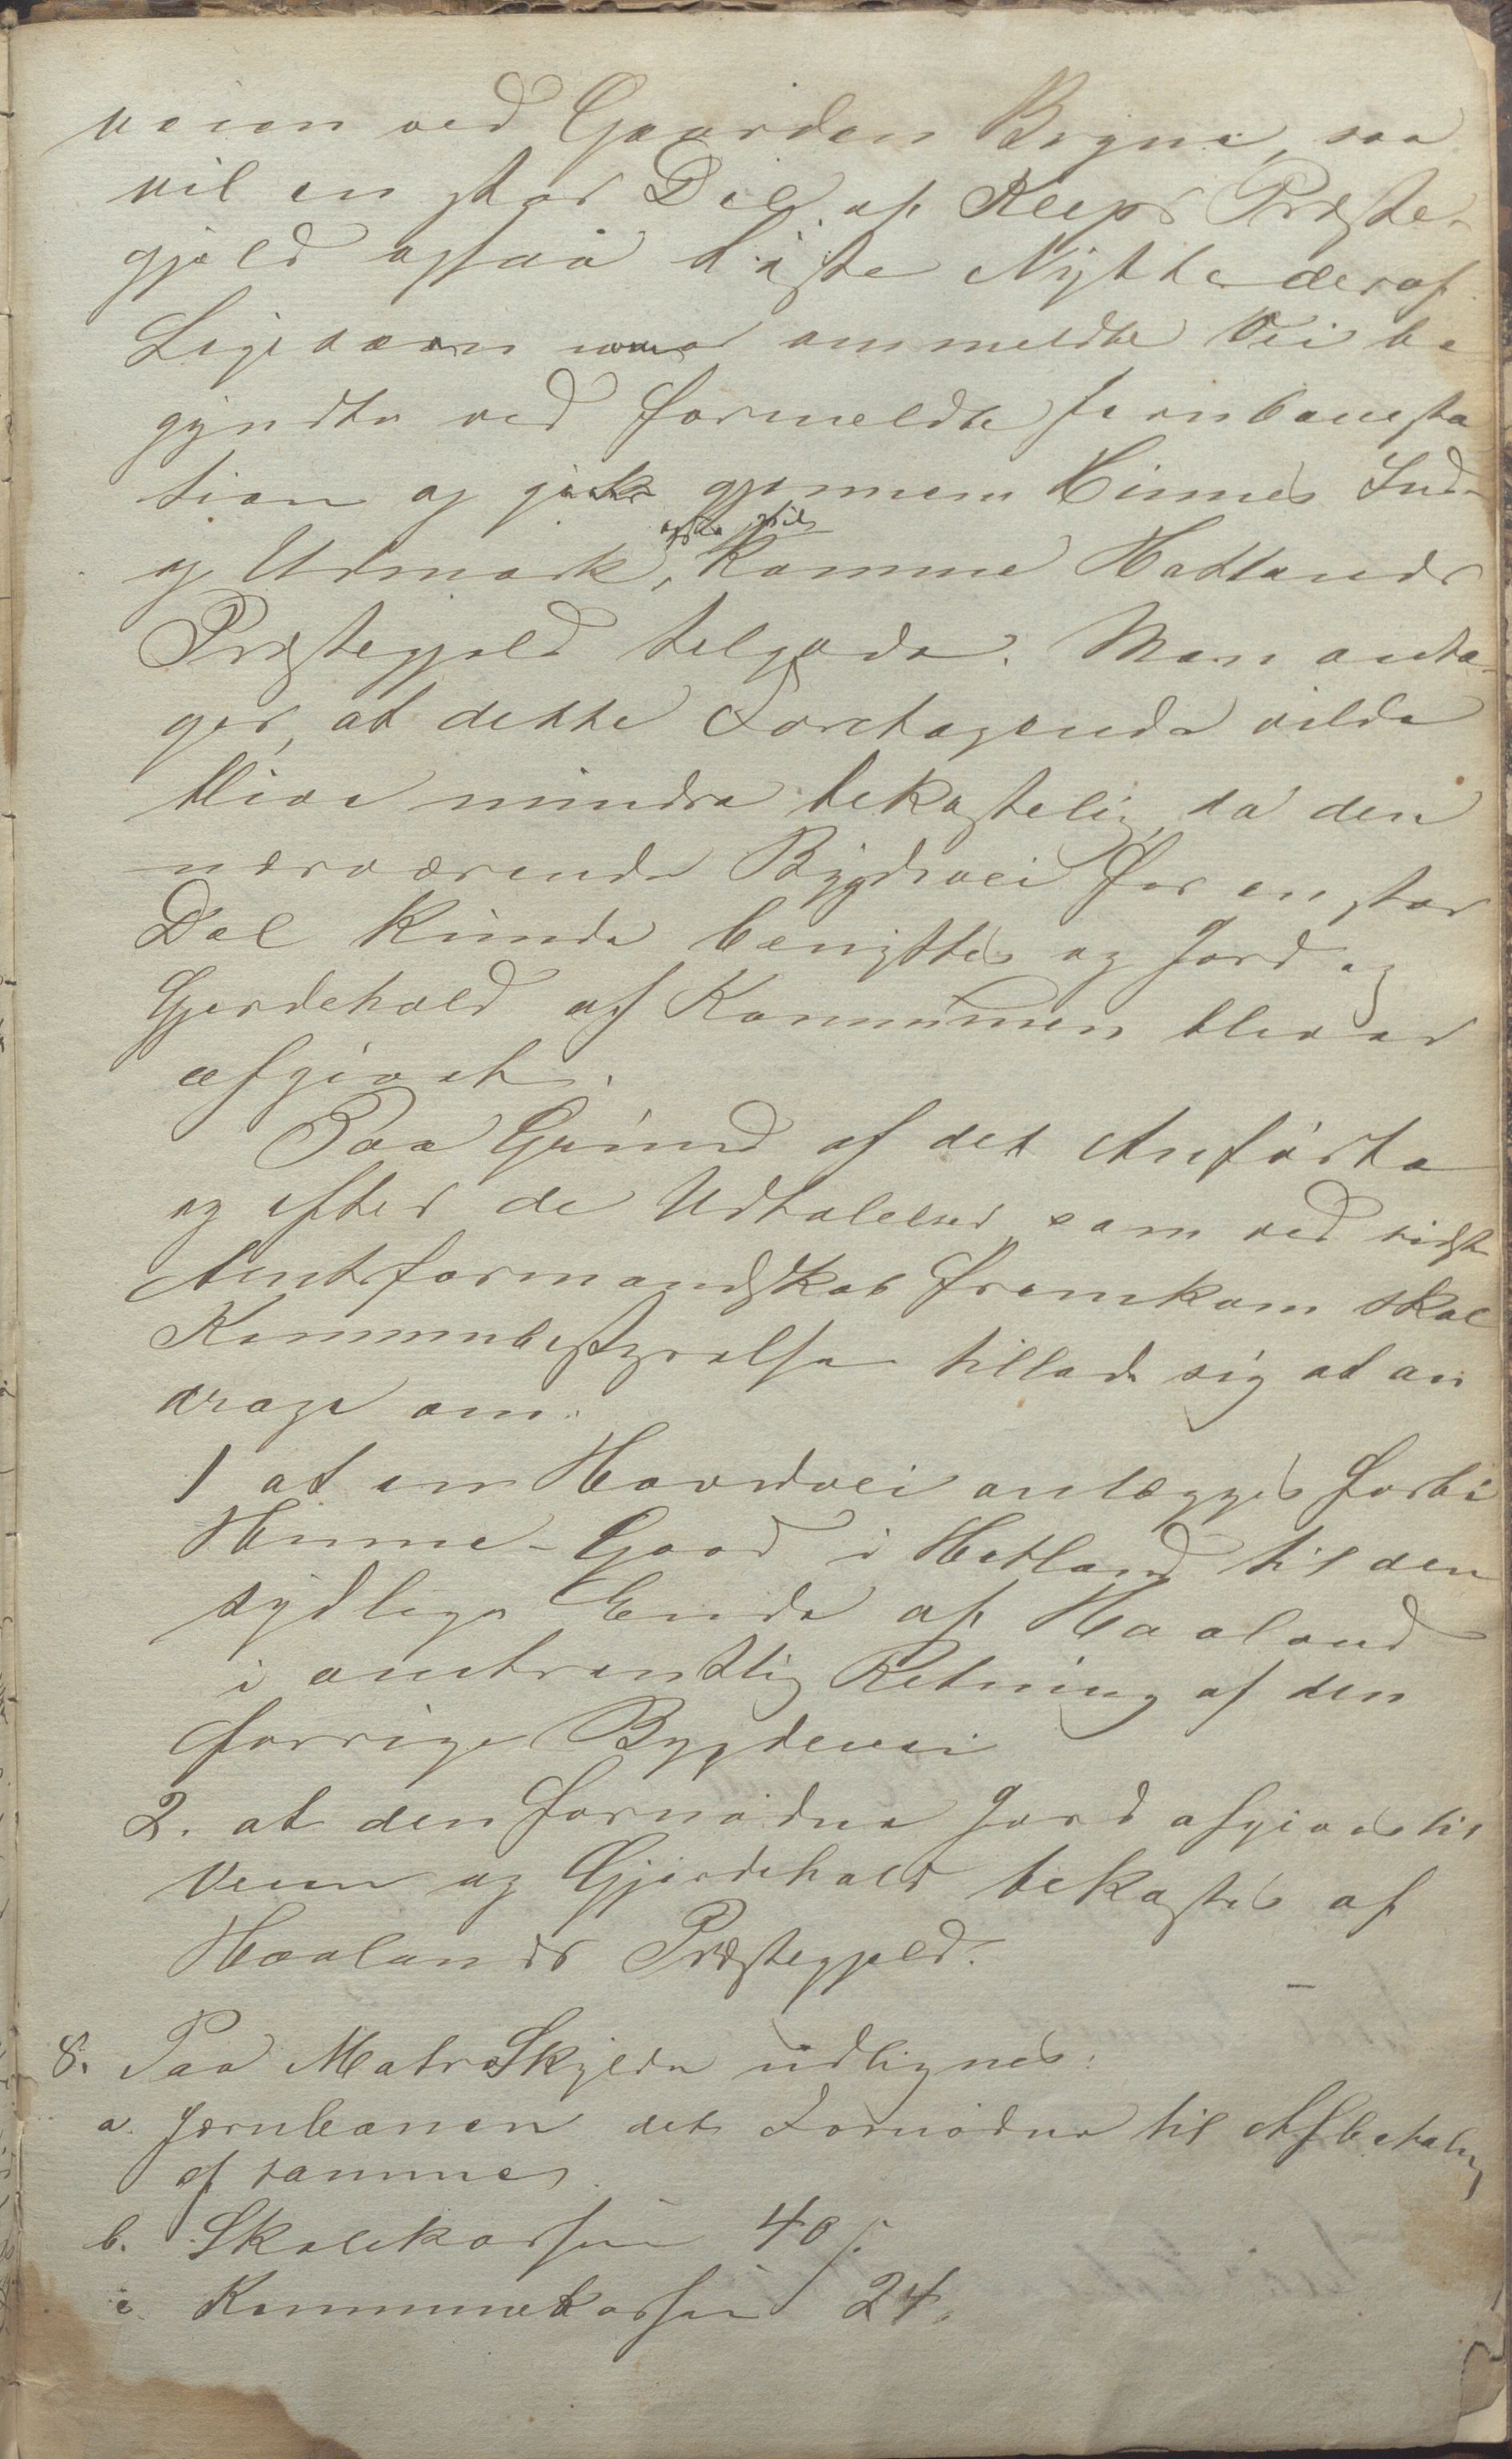 veien ved Gaarden Bryne, saa
vil en stor Del af Kleps Præste-
gjeld ogsaa høste Nytte deraf.
Ligesaa om ommeldte Vei be
gyndte ved formeldte Jernbanesta
tion og gik gjennem Hinnes Ind-
og Udmark, komme Hetlands
Præstegjeld tilgode. Man anta-
ger, at dette Foretagende vilde
blive mindre bekostelig, da den
nærværende Bygdevei for en stor
Del kunde benyttes og Jord og
Gjerdehold af Kommunen bliver
afgivet.
Paa Grund af det Anførte
og efter de Udtalelser som ved sidste
Amtsformandskab fremkom skal
Kommunbestyrelsen tillade sig at an
drage om:
1 at en Hovedvei anlægges forbi
Hinne-Gaard i Hetland til den
sydlige Ende af Haaland
i omtrentlig Retning af den
forrige Bygdevei
2. at den fornødne Jord afgives til
Veien og Gjerdehold bekostes af
Haalands Præstegjeld. —
8. Paa Matr Skylden udlignes:
a. Jernbanen det Fornødne til Afbetaling
af samme.
b. Skolekassen 40 s.
c. Kommunekassen 24.